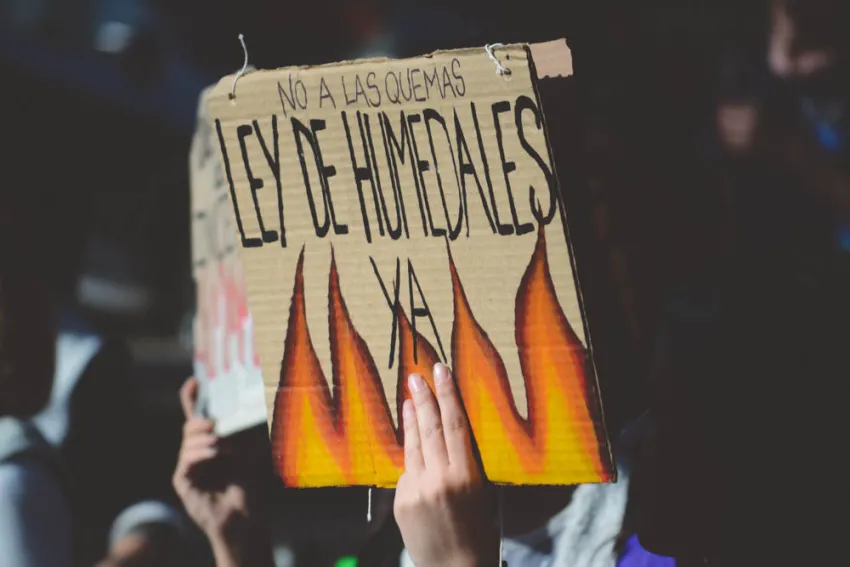 NO A LAS QUEMAS
LEY DE HUMEDALES
YA